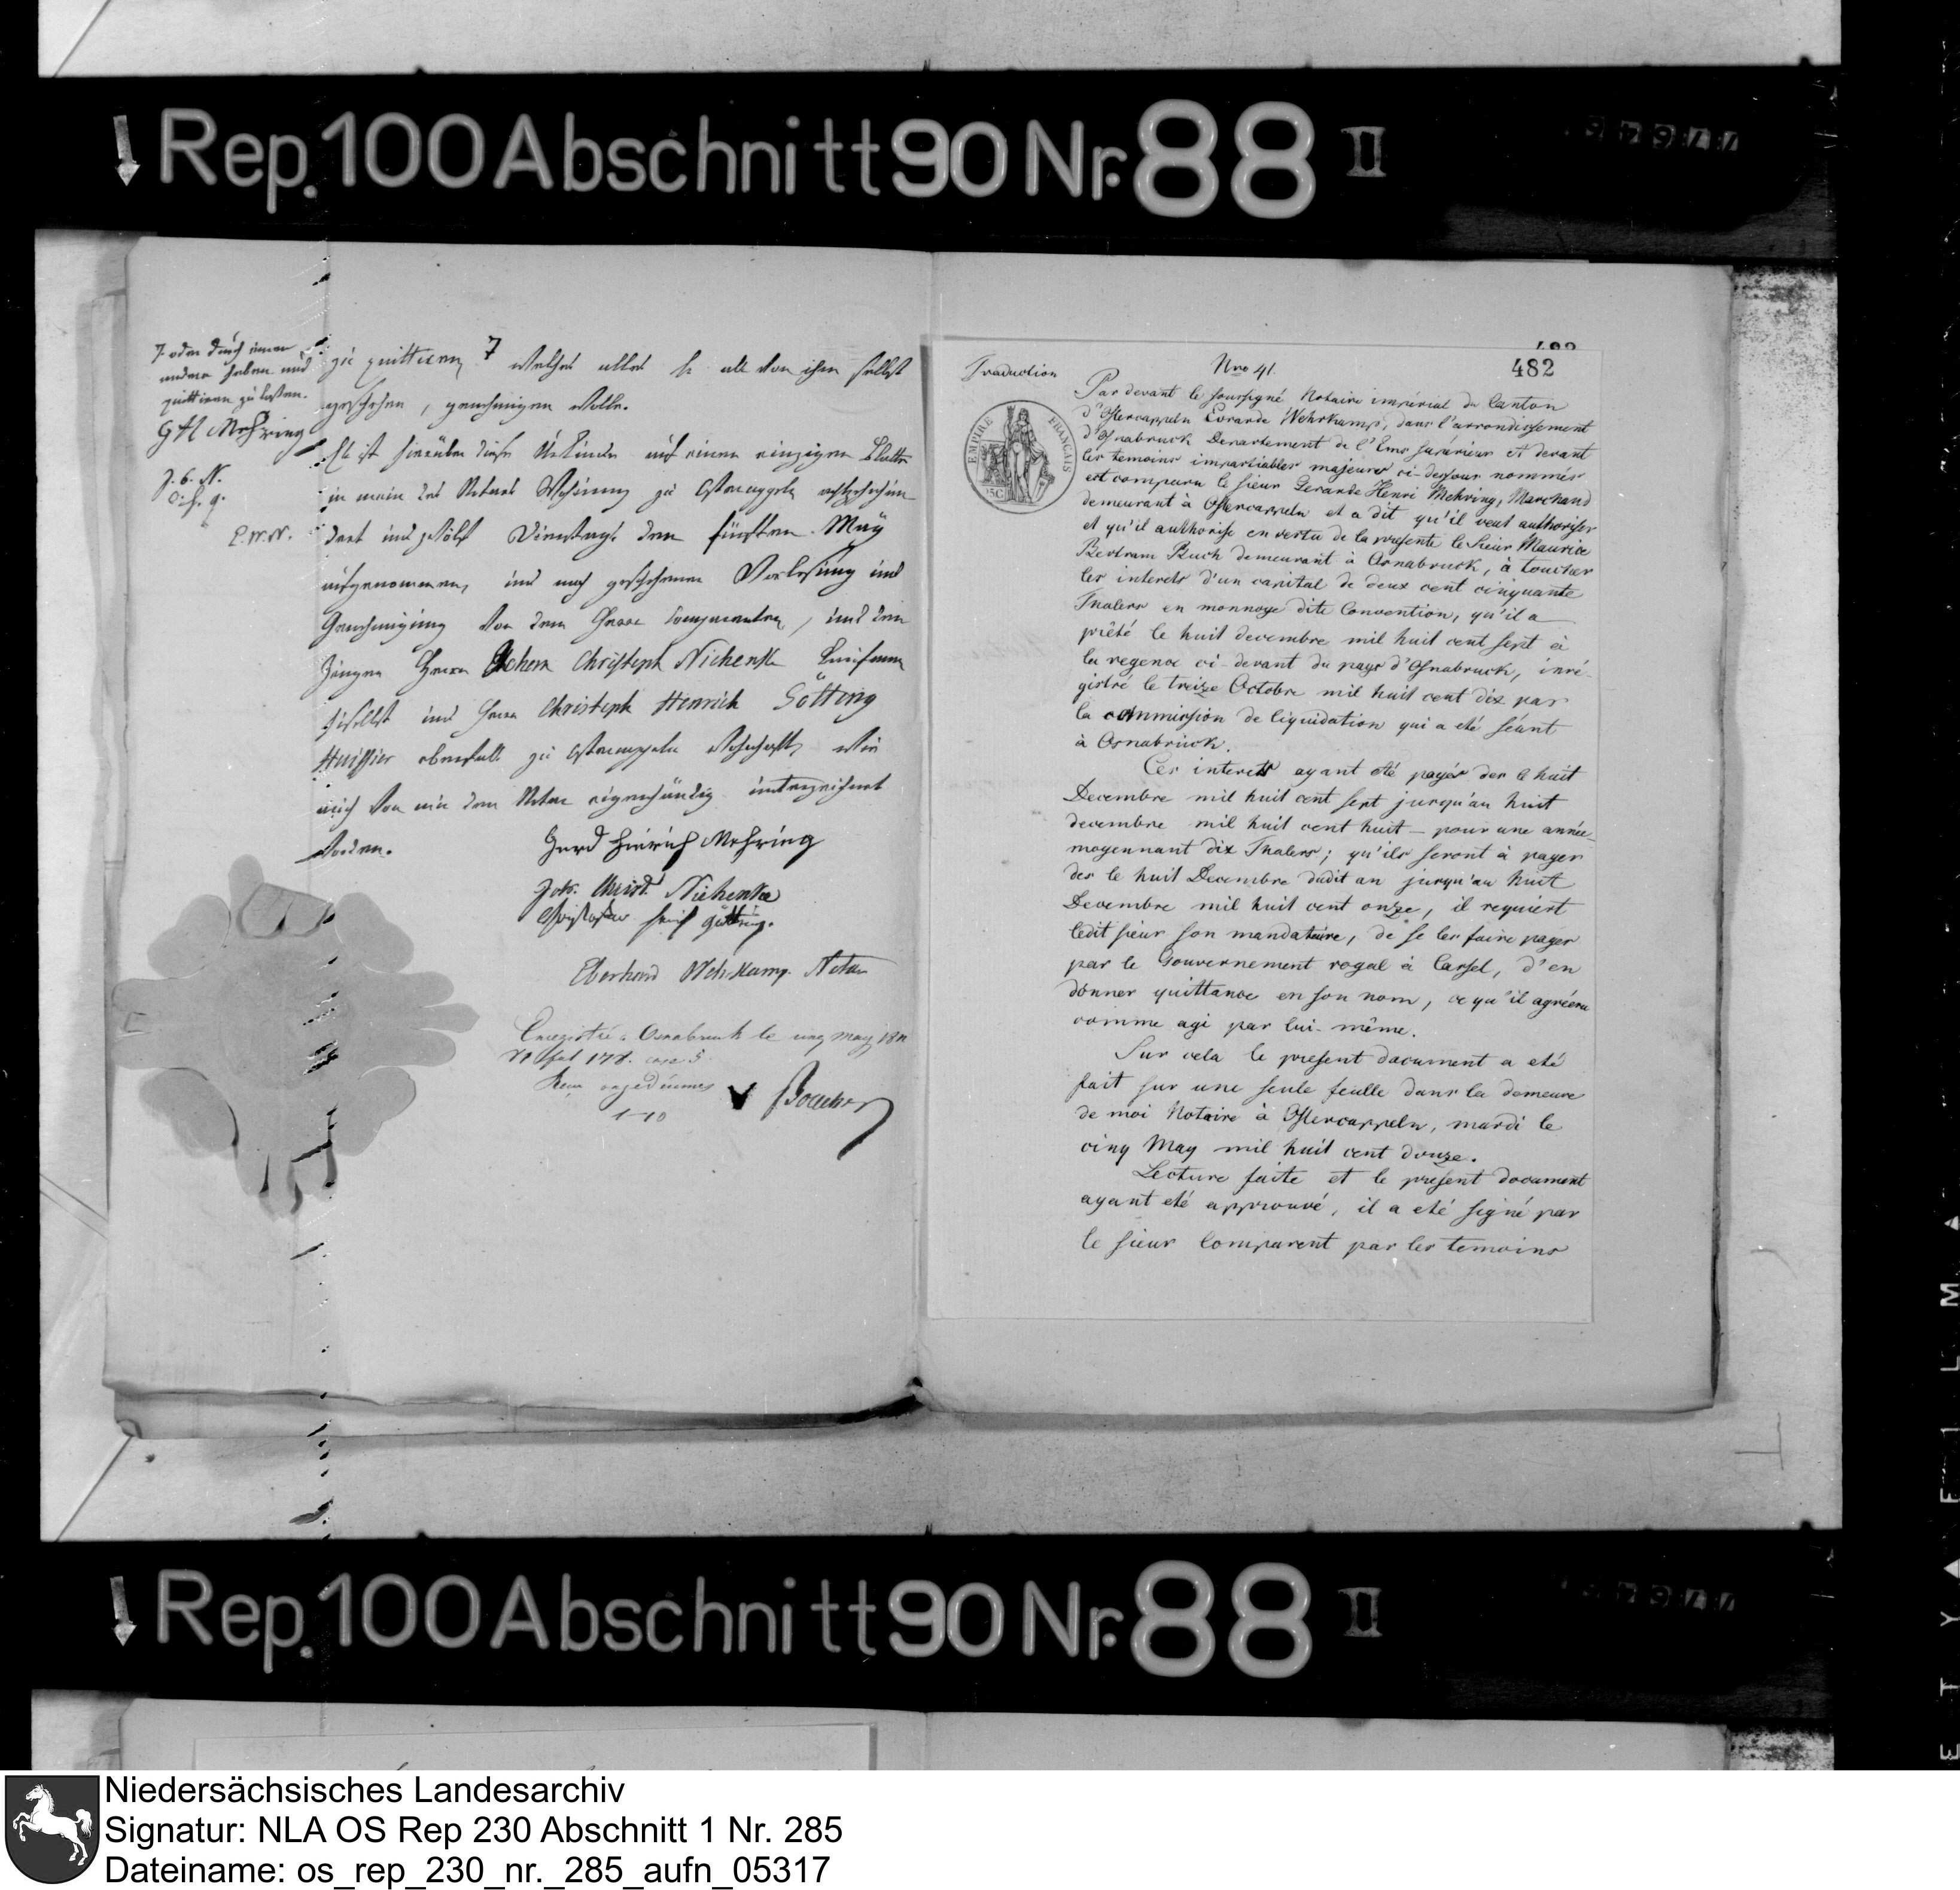 Rep. 100 Abschnitt 90 Nr. 88 II
7 oder durch einen
andern heben und
quittiren zu lassen.
GH Mehring
J. C. N.
C. H. G.
E. W. N.
zu quittiren 7 welches alles so als von ihm selbst
geschehen, genehmigen wolle.
Es ist hierüber diese Urkunde auf einem einzigen Blatte
in mein des Notars Wohnung zu Ostercappeln achtzehnhun-
dert und zwölf Dienstags den fünften May
aufgenommen, und nach geschehener Vorlesung und
Genehmigung von dem Herrn Comparenten, und den
Zeugen Herrn Johann Christoph Niehenke Kaufmann
hieselbst und Herrn Christoph Henrich Götting
Huissier ebenfalls zu Ostercappeln wohnhaft, wie
auch von mir dem Notar eigenhändig unterzeichnet
worden.
Gerd Hinrich Mehring
Joh. Christ. Niehenke
Christopher Henrich Götting.
Eberhard Wehrkamp Notar
Enregistré à Osnabruck le cinq may 181
fol 178. case 5
Reçu
1-10
Boucher
482
482
Traduction
Nro 41.
EMPIRE FRANÇAIS
Par devant le soussigné Notaire impérial du Canton
d'Ostercappeln Evrarde Wehrkamp, dans l'arrondissement
d'Osnabruck Departement de l'Ems supérieur et devant
les temoins impartiables majeurs ci-dessour nommés
est comparu le sieur Gerarde Henri Mehring, Marchand
demeurant à Ostercappeln et a dit qu'il veut authoriser
et qu'il authorise en vertu de la presente le Sieur Maurice
Bertram Buch demeurant à Osnabruck, à toucher
les interets d'un capital de deux cent cinquante
Thalers en monnoye dite Convention, qu'il a
prêté le huit decembre mil huit cent sept à
la regence ci-devant du pays d'Osnabruck, inré-
gistré le treize Octobre mil huit cent dix par
la commission de liquidation qui a eté séant
à Osnabruck.
Ces interets ayant été payés des le huit
Decembre mil huit cent sept jusqu'au huit
decembre mil huit cent huit – pour une année
moyennant dix Thalers; qu'ils seront à payer
des le huit Decembre dudit an jusqu'au huit
Decembre mil huit cent onze, il requiert
ledit sieur son mandataire, de se les faire payer
par le Gouvernement royal à Cassel, d'en
donner quittance en son nom, ce qu'il agréera
comme agi par lui-même.
Sur cela le present document a eté
fait sur une seule feulle dans la demeure
de moi Notaire à Ostercappeln, mardi le
cinq May mil huit cent douze.
Lecture faite et le present document
ayant eté approuvé, il a eté signé par
le sieur Comparent par les temoins
Rep. 100 Abschnitt 90 Nr. 88 II
Niedersächsisches Landesarchiv
Signatur: NLA OS Rep 230 Abschnitt 1 Nr. 285
Dateiname: os_rep_230_nr._285_aufn_05317